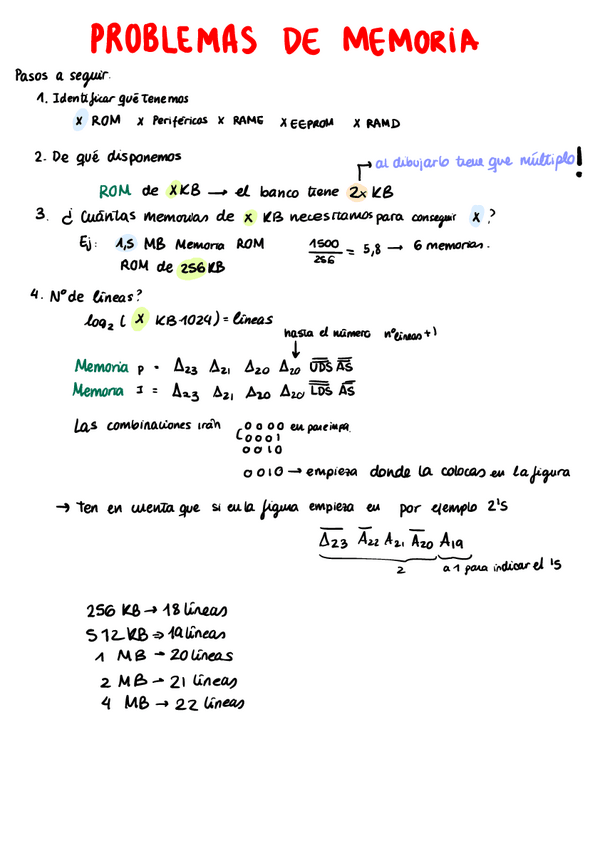 PROBLEMAS DE MEMORIA
Pasos a seguir.
1. Identificar qué tenemos
x ROM x Periféricos x RAME x EEPROM x RAMD
2. De qué disponemos
→ al dibujarlo tiene que múltiplo!
ROM de XKB → el banco tiene 2x KB
3. ¿Cuántas memorias de x KB necesitamos para conseguir x?
Ej: 1,5 MB Memoria ROM
ROM de 256KB
1500/256 = 5,8 → 6 memorias.
4. Nº de líneas?
log₂ ( X KB·1024) = líneas
hasta el número nº líneas + 1
Memoria P = A23 A21 A20 A20 U̅D̅S̅ A̅S̅
Memoria I = A23 A21 A20 A20 L̅D̅S̅ A̅S̅
Las combinaciones irán 0000 en par e impa.
0001
0010
0010 → empieza donde la colocas en la figura
→ Ten en cuenta que si en la figura empieza en por ejemplo 2's
A̅23 A̅22 A21 A̅20 A19
2 a 1 para indicar el 's
256 KB → 18 líneas
512 KB ⇒ 19 líneas
1 MB → 20 líneas
2 MB → 21 líneas
4 MB → 22 líneas